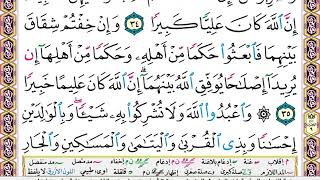 إِنَّ ٱللَّهَ كَانَ عَلِيًّا كَبِيرًا ۝٣٤ وَإِنْ خِفْتُمْ شِقَاقَ
بَيْنِهِمَا فَٱبْعَثُوا۟ حَكَمًا مِّنْ أَهْلِهِۦ وَحَكَمًا مِّنْ أَهْلِهَآ إِن
يُرِيدَآ إِصْلَٰحًا يُوَفِّقِ ٱللَّهُ بَيْنَهُمَآ إِنَّ ٱللَّهَ كَانَ عَلِيمًا خَبِيرًا
۝٣٥ وَٱعْبُدُوا۟ ٱللَّهَ وَلَا تُشْرِكُوا۟ بِهِۦ شَيْـًٔا وَبِٱلْوَٰلِدَيْنِ
إِحْسَٰنًا وَبِذِى ٱلْقُرْبَىٰ وَٱلْيَتَٰمَىٰ وَٱلْمَسَٰكِينِ وَٱلْجَارِ